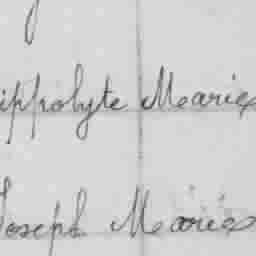 ippolyte Marie
Joseph Marie